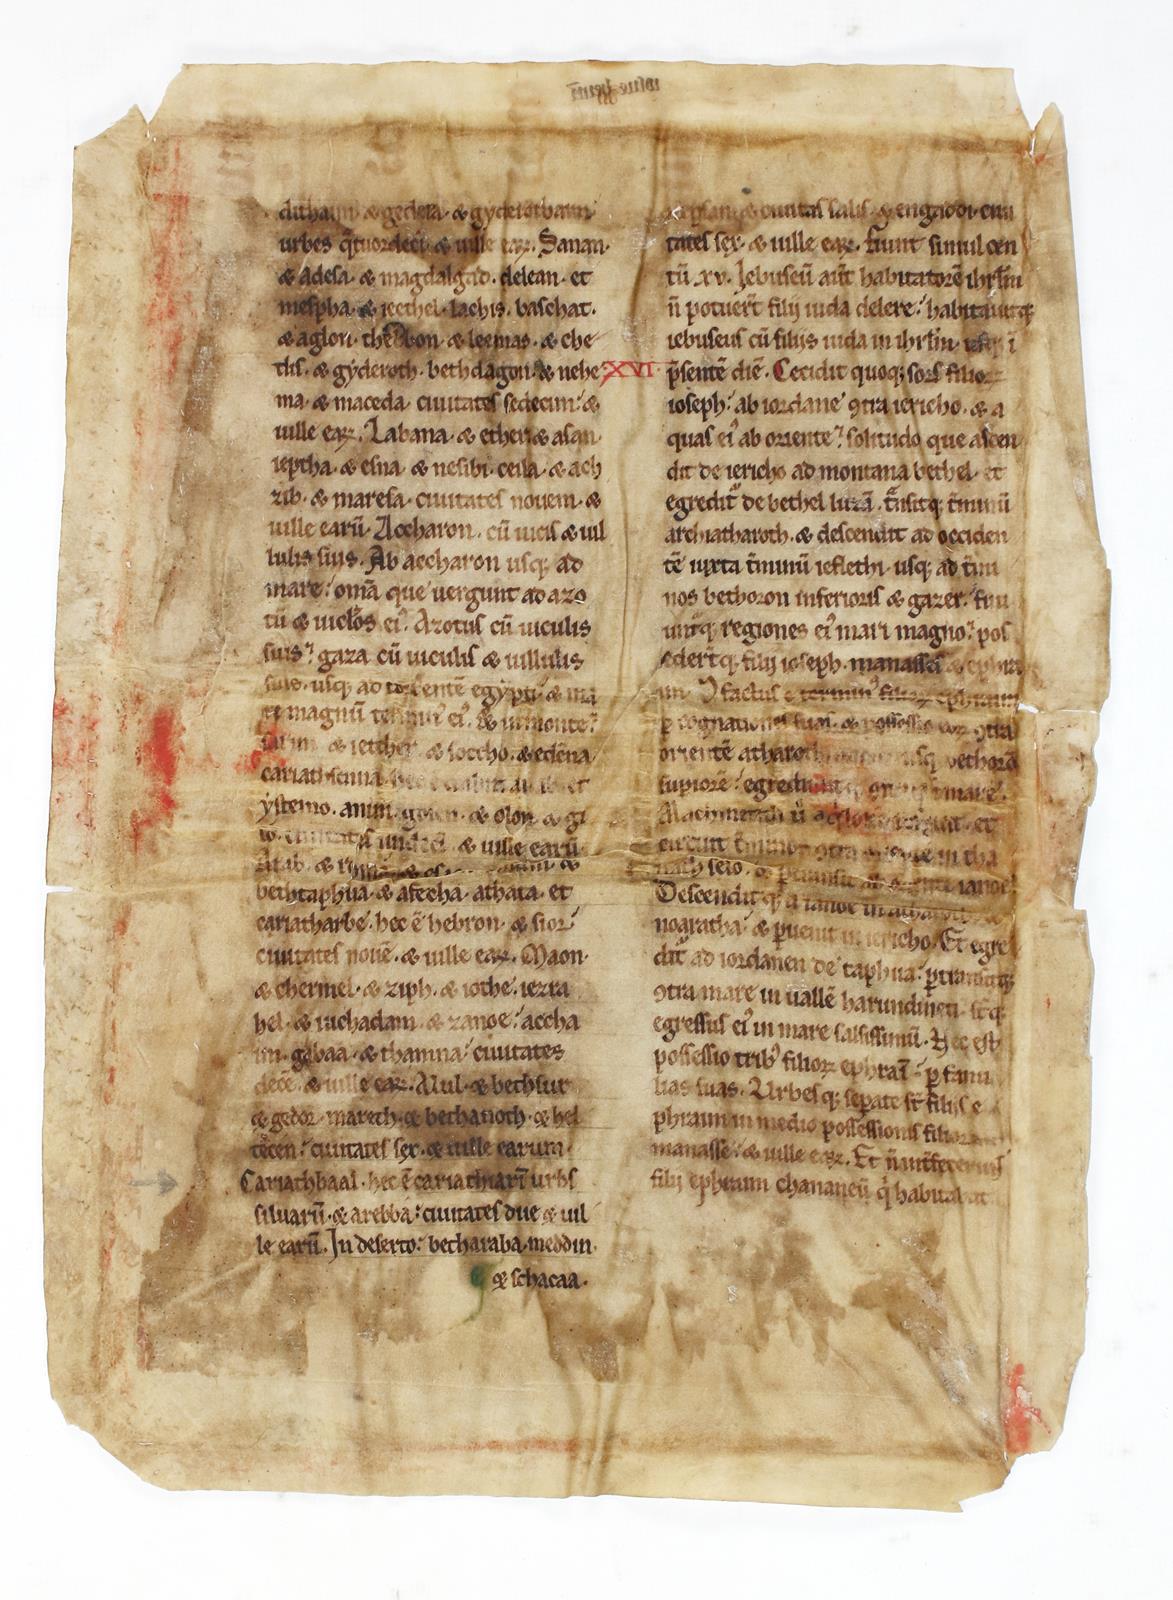 dithaim & gedera & gyderothaim
urbes q̄tuordeci & uille eaꝝ. Sanan
& adesa & magdalgad. delean. et
mespha & iecthel. lachis. baschat.
& aglon. thebbon & leemas. & che
tlis. & gyderoth. bethdagon. & nehe
ma. & maceda. ciuitates sedecim. &
uille eaꝝ. Labana & ether & asan.
ieptha. & esna & nesibi. ceila. & ach
zib. & maresa. ciuitates nouem. &
uille earū. Accharon. cū uicis & uil
lulis suis. Ab accharon usq; ad
mare. om̄a que uergunt ad azo
tū & uiclos ei᷒. Azotus cū uiculis
suis. gaza cū uiculis & uillulis
suis. usq; ad torrentē egypti. & ma
re magnū termin᷒ ei᷒. & in monte.
& iether. & soccho. & edēna
cariath senna. hec ē
ystemo. anim. gosen. & olon. & gi
lo. ciuitates undeci. & uille earū.
Arab. &
bethtaphua & afecha. athata. et
cariatharbe. hec ē hebron. & sior.
ciuitates nouē. & uille eaꝝ. Maon.
& chermel. & ziph. & iothe. iezra
hel. & iuchadam. & zanoe. accha
im. gabaa. & thamna. ciuitates
decē. & uille eaꝝ. Alul. & bethsur
& gedor. mareth. & bethanoth. & hel
tecen. ciuitates sex. & uille earum.
Cariathbaal. hec ē cariathiarī urbs
siluarū. & arebba. ciuitates due & uil
le earū. In deserto. betharaba. meddin.
& schacaa.
ciuitas salis. & engaddi. ciui
tates sex. & uille eaꝝ. fiunt simul cen
tū xv. Iebuseū aūt habitatorē ihrl̄m
n̄ potuer̄t filij iuda delere. habitauitq;
iebuseus cū filijs iuda in ihrl̄m usq; ī
XVI p̄sentē diē. Cecidit quoq; sors filioꝝ
ioseph. ab iordane ꝯtra iericho. & a
quas ei᷒ ab oriente. solitudo que ascen
dit de iericho ad montana bethel. et
egredit᷑ de bethel luzā. t̄nsitq; t̄minū
archiatharoth. & descendit ad occiden
tē iuxta t̄minū ieflethi. usq; ad t̄mi
nos bethoron inferioris & gazer. fini
unt᷑q; regiones ei᷒ mari magno. pos
sedert̄q; filij ioseph. manasses & ephra
im. & factus ē termin᷒ filioꝝ ephraim
ꝑ cognationes suas. & possessio eoꝝ ꝯtra
orientē atharoth usq; bethorō
supiorē. egrediunt᷑q;
Machmetath
circuit t̄minos ꝯtra orientē in tha
nath selo. & ꝑtransit ab oriente ianoe
Descenditq; a ianoe in atharoth. &
noaratha. & ꝑuenit in iericho. Et egre
dit᷑ ad iordanen de taphua. ꝑtransitq;
ꝯtra mare in uallē harundineti. st̄q;
egressus ei᷒ in mare salsissimū. Hec est
possessio trib᷒ filioꝝ ephraī. ꝑ fami
lias suas. Urbesq; sepate st̄ filijs e
phraim in medio possessionis filioꝝ
manasse. & uille eaꝝ. Et n̄ int̄fecerūt
filij ephraim chananeū q̄ habitabat